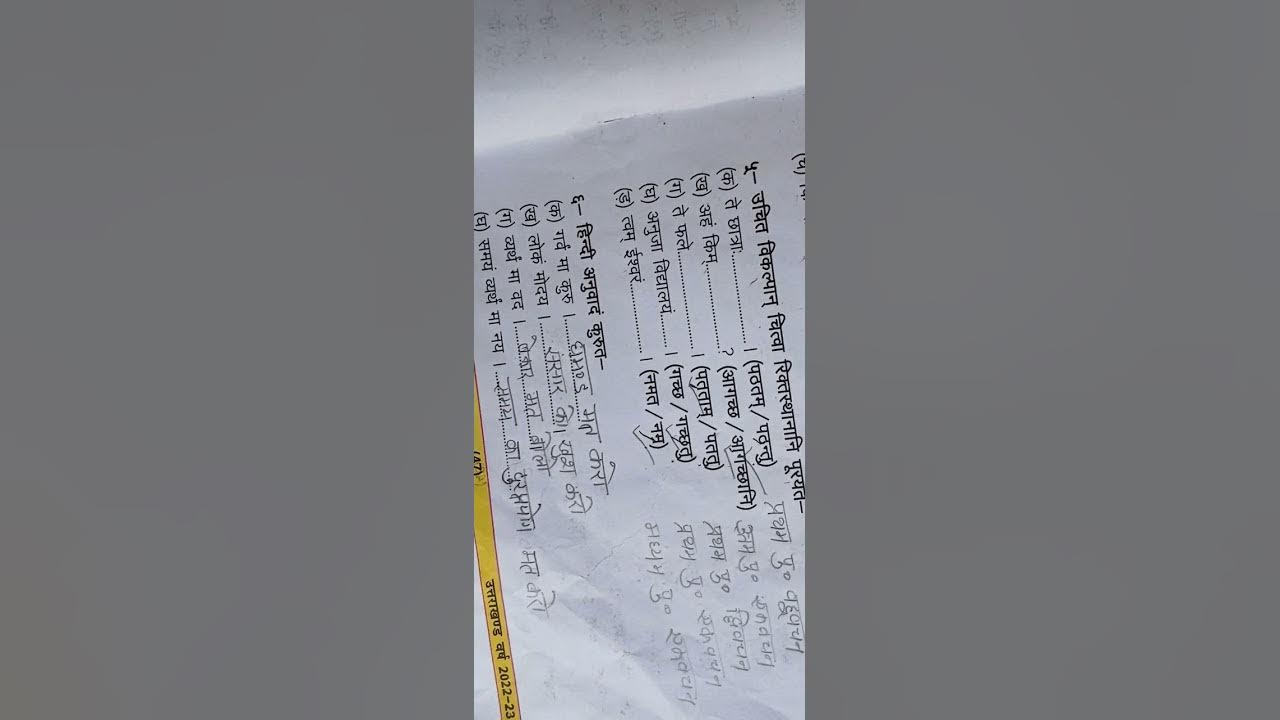 ५– उचित विकल्पान् चित्वा रिक्तस्थानानि पूरयत–
(क) ते छात्राः....................। (पठतम् / पठन्तु) प्रथम पु० बहुवचन
(ख) अहं किम्....................? (आगच्छ / आगच्छानि) उत्तम पु० एकवचन
(ग) ते फले....................। (पतताम् / पततु) प्रथम पु० द्विवचन
(घ) अनुजा विद्यालयं..........। (गच्छ / गच्छतु) प्रथम पु० एकवचन
(ङ) त्वम् ईश्वरं....................। (नमत / नम) मध्यम पु० एकवचन
६– हिन्दी अनुवादं कुरुत–
(क) गर्वं मा कुरु ।.......... घमण्ड मत करो
(ख) लोकं मोदय ।.......... संसार को खुश करो
(ग) व्यर्थं मा वद ।.......... बेकार मत बोलो
(घ) समयं व्यर्थं मा नय ।.......... समय का दुरुपयोग मत करो
उत्तराखण्ड वर्ष 2022-23